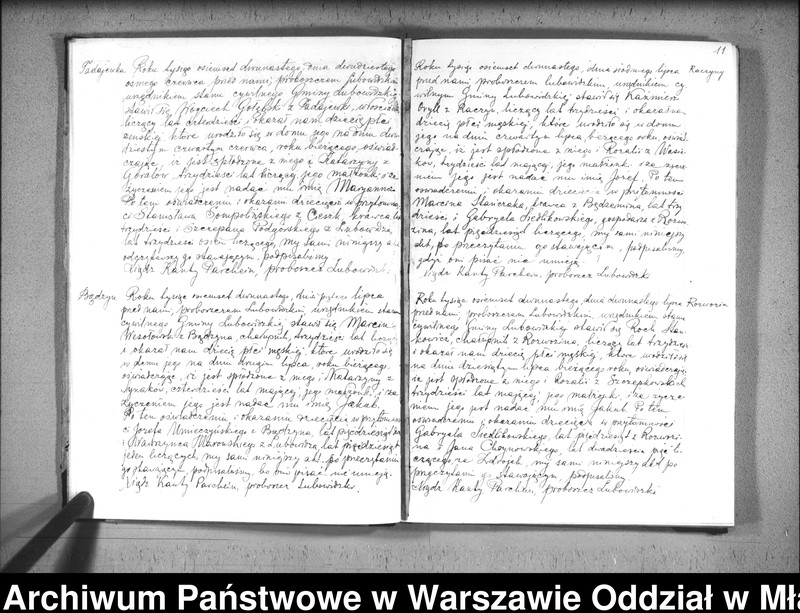 Padajenka Roku tysiąc osiemset dwunastego, dnia dwudziestego
ósmego czerwca przed nami, proboszczem Lubowidzkim
urzędnikiem stanu cywilnego Gminy Lubowidzkiej
stawił się Wojciech Gołębski z Padajenki, włościanin
liczący lat czterdzieści i okazał nam dziecię płci
żeńskiej, które urodziło się w domu jego na dniu dwu-
dziestym czwartym czerwca, roku bieżącego, oświad-
czając, iż jest spłodzone z niego i Katarzyny z
Góralów, trzydzieści lat liczącej, jego małżonki i że
życzeniem jego jest nadać mu imię Maryanna.
Po tem oświadczeniu i okazaniu dziecięcia w przytomno-
ści Stanisława z krawca lat
trzydzieści i Szczepana Podgórskiego z Lubowidza,
lat trzydzieści osiem liczącego, my sami niniejszy akt
stawającym, podpisaliśmy
Xiądz Kanty Parchein, proboszcz Lubowidzki.
Bądzyn Roku tysiąc osiemset dwunastego, dnia piątego lipca
przed nami, proboszczem Lubowidzkim, urzędnikiem stanu
cywilnego Gminy Lubowidzkiej, stawił się Marcin
Wesołowski z Bądzyna, chałupnik, trzydzieści lat liczący
i okazał nam dziecię płci męskiej, które urodziło się
w domu jego na dniu drugim lipca, roku bieżącego,
oświadczając iż jest spłodzone z niego i Katarzyny z
czterdzieści lat mającej, jego małżonki, i że
życzeniem jego jest nadać mu imię Jakób.
Po tem oświadczeniu i okazaniu dziecięcia w przytomno-
ści Józefa z Bądzyna, lat pięćdziesiąt
i Wawrzyńca Murawskiego z Lubowidza, lat pięćdziesiąt
jeden liczących, my sami niniejszy akt, po przeczytaniu
go stawającym, podpisaliśmy, bo oni pisać nie umieją.
Xiądz Kanty Parchein, proboszcz Lubowidzki.
11
Roku tysiąc osiemset dwunastego, dnia siódmego lipca Raczyny
przed nami proboszczem lubowidzkim, urzędnikiem cy-
wilnym Gminy Lubowidzkiej, stawił się Kaźmierz
z Raczyn, liczący lat trzydzieści, i okazał nam
dziecię płci męskiej, które urodziło się w domu
jego na dniu czwartym lipca bieżącego roku, oświad-
czając, iż jest spłodzone z niego i Rozalii z Wasi-
ków, trzydzieści lat mającej, jego małżonki i że życze-
niem jego jest nadać mu imię Józef. Po tem
oświadczeniu i okazaniu dziecięcia w przytomności
Marcina Stańczaka, z Bądzemina, lat trzy-
dzieści, i Gabryela Siedlikowskiego, gospodarza z Rozwo-
zina, lat pięćdziesiąt liczącego, my sami niniejszy
akt, po przeczytaniu go stawającym, podpisaliśmy,
gdyż oni pisać nie umieją.
Xiądz Kanty Parchein, proboszcz Lubowidzki
Roku tysiąc osiemset dwunastego, dnia dwunastego lipca Rozwozin
przed nami, proboszczem Lubowidzkim, urzędnikiem stanu
cywilnego Gminy Lubowidzkiej stawił się Roch Stan-
kowicz, chałupnik z Rozwozina, liczący lat trzydzieści
i okazał nam dziecię płci męskiej, które urodziło się
na dniu dziesiątym lipca bieżącego roku, oświadczając
iż jest spłodzone z niego i Rozalii z Szczepkowskich
trzydzieści lat mającej, jego małżonki, i że życze-
niem jego jest nadać mu imię Jakub. Po tem
oświadczeniu i okazaniu dziecięcia w przytomności
Gabryela Siedlikowskiego, lat pięćdziesiąt z Rozwozi-
na i Jana Choynowskiego, lat dwadzieścia pięć li-
czącego, z my sami niniejszy akt po
przeczytaniu go stawającym, podpisaliśmy.
Xiądz Kanty Parchein, proboszcz Lubowidzki
Archiwum Państwowe w Warszawie Oddział w Mła